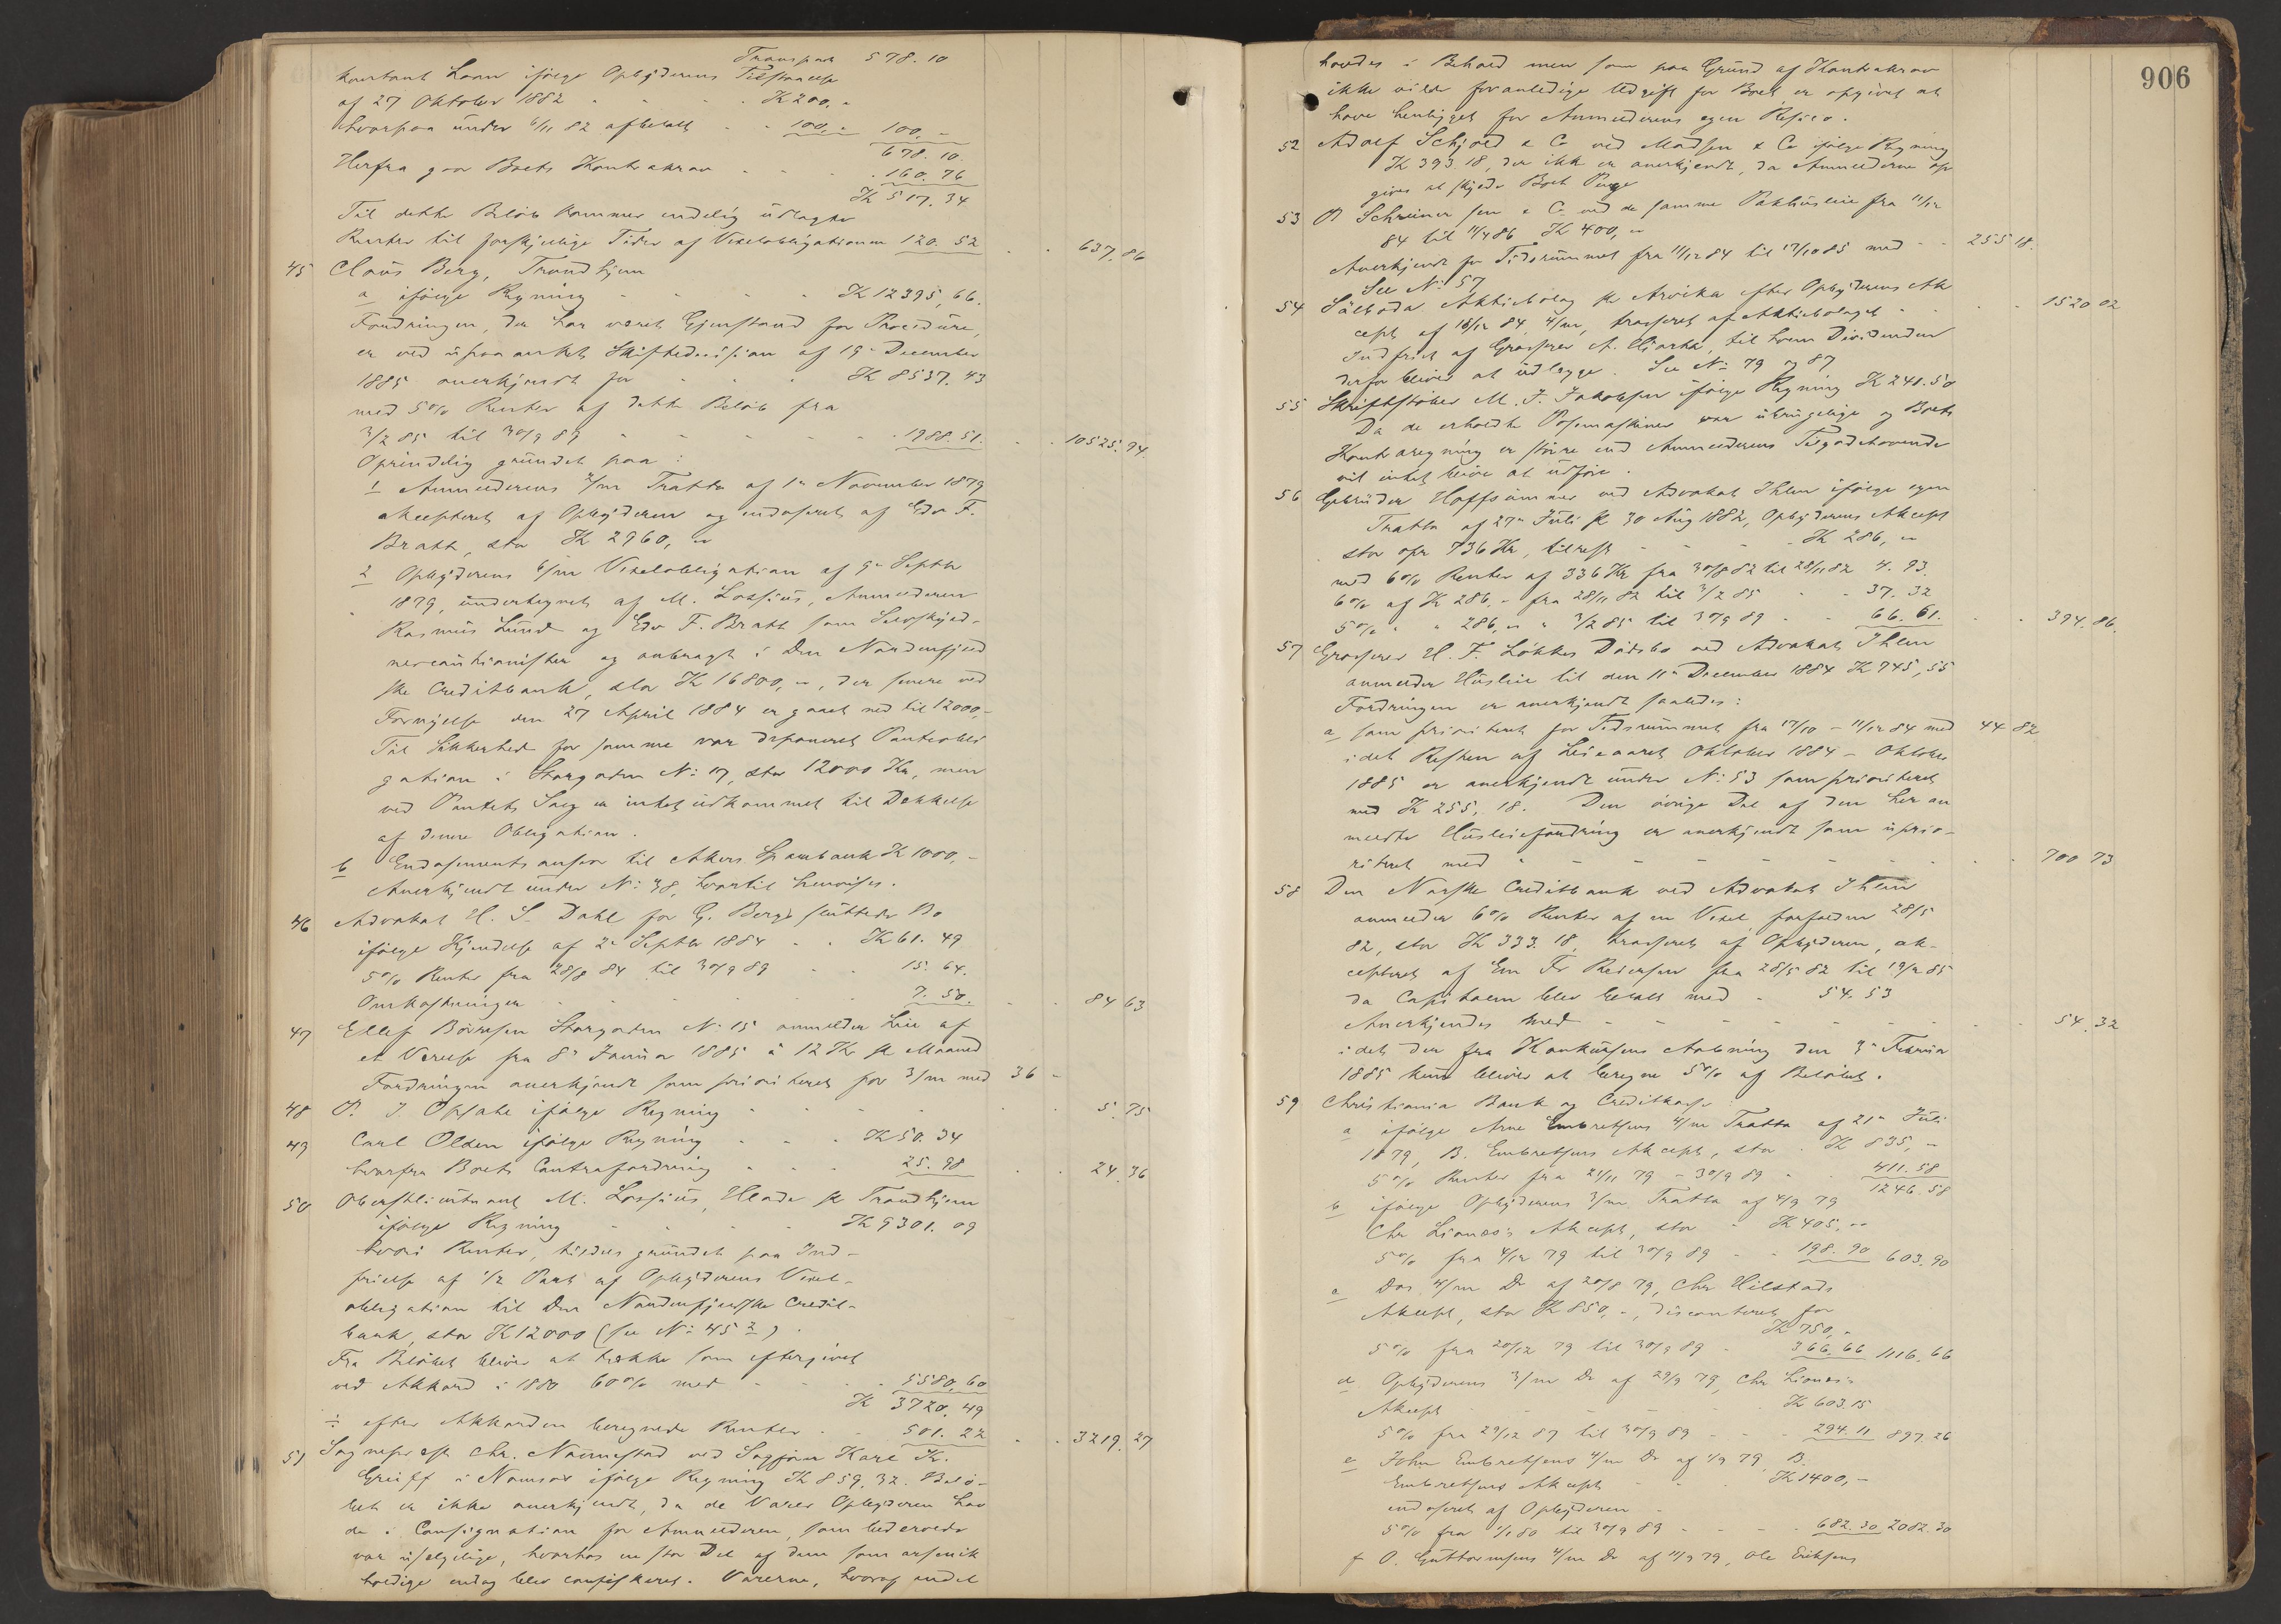 Transport 578.10
kontant Laan ifølge Opbyderens Tilstaaelse
af 27 Oktober 1882 - - - - K 200,-
hvorpaa under 6/11 82 afbetalt - - 100,- 100,-
678.10.
Herfra gaar Boets Kontrakrav - - - - 160.76
K 517.34
Til dette Beløb kommer endelig udlagte
Renter til forskjellige Tider af Vexelobligationen 120.52 - - 637,86
45 Claus Berg, Trondhjem
a ifølge Regning - - - - K 12395,66.
Fordringen, der har været Gjenstand for Procedüre,
er ved upaaanket Skiftedecision af 19de December
1885 anerkjendt for - - - K 8537,43
med 5% Renter af dette Beløb fra
3/2 85 til 30/9 89 - - - - - 1988.51. - - 10525.94.
Oprindelig grundet paa:
1 Anmelderens 4/m Tratta af 1ste November 1879
akcepteret af Opbyderen og endosseret af Edv F.
Bratt, stor K 2960,-
2 Opbyderens 6/m Vexelobligation af 9de Septbr
1879, undertegnet af M. Lossius, Anmelderen
Rasmus Lund og Edv F. Bratt som Selvskyld-
nercautionister og anbragt i Den Nordenfjeld
ske Creditbank, stor K 16800,-, der senere ved
Fornyelse den 27 April 1884 er gaaet ned til 12000,-
Til Sikkerhed for samme var deponeret Panteobli
gation i Storgaden No 17, stor 12000 Kr, men
ved Pantets Salg er intet udkommet til Dækkelse
af denne Obligation.
b Endossements ansvar til Akers Sparebank K 1000,-
Anerkjendt under No 38, hvortil henvises.
46 Advokat H. S. Dahl for G. Berg's sluttede Bo
ifølge Kjendelse af 2de Septbr 1884 - - K 61.49
5% Renter fra 28/8 84 til 30/9 89 - - 15.64.
Omkostninger - - - - - 7.50. - - 84 63
47 Ellef Børresen Storgaden No 15 anmelder Leie af
et Værelse fra 8de Januar 1885 a 12 Kr pr Maaned
Fordringen anerkjendt som prioriteret for 3/m med 36 -
48 P. J. Opsahl ifølge Regning - - - - - 5.75
49 Carl Olsen ifølge Regning - - - K 50.34
hvorfra Boets Contrafordring - - - 25.98 - - 24.36
50 Oberstløitnant M. Lossius, Hlade pr Trondhjem
ifølge Regning - - - - K 9301.09
hvori Renter, tildels grundet paa Ind-
frielse af 1/2 Part af Opbyderens Vexel-
obligation til Den Nordenfjeldske Credit-
bank, stor K 12000 (se No 45 2)
Fra Beløbet bliver at trække som eftergivet
ved Akkord i 1880 60% med - - - 5580,60
K 3720,49
÷ efter Akkorden beregnede Renter - - 501.22 - - 3219.27
51 Sognepræst Chr. Naumestad ved Sagfører Karl Kr.
Greiff i Namsos ifølge Regning K 859,32. Belø-
bet er ikke anerkjendt, da de Varer Opbyderen hav
de i Consignation for Anmelderen, som bedærvede
var usælgelige, hvorhos en stor Del af dem som arsenik
holdige endog blev confiskeret. Varerne, hvoraf endel
906
havdes i Behold men som paa Grund af Kontrakrav
ikke vilde foranledige Udgift for Boet er opgivet at
have henligget for Anmelderens egen Risico.
52 Adolf Schjold & Co ved Madsen & Co ifølge Regning
K 393.18, der ikke er anerkjendt, da Anmelderne op
gives at skylde Boet Penge
53 P Schreiner sen & Co ved de samme Pakhusleie fra 11/12
84 til 11/4 86 K 400,-
Anerkjendt for Tidsrummet fra 11/12 84 til 17/10 85 med - - 255 18.
See No 57
54 Sälboda Aktiebolag pr Arvika efter Opbyderens Ak
cept af 16/12 84, 4/m, trasseret af Aktiebolaget - - - - 1520 02
Indfriet af Grosserer A. Hjorth, til hvem Dividenden
derfor bliver at udlægge. See No 79 og 87
55 Skriftstøber M. J. Jakobsen ifølge Regning K 248.50
Da de erholdte Posemaskiner var ubrugelige og Boets
Kontraregning er større end Anmelderens Tilgodehavende
vil intet blive at udføre.
56 Gebrüder Hoffsümmer ved Advokat Ihlen ifølge egen
Tratta af 27de Juli pr 30 Aug 1882, Opbyderens Akcept
stor opr 736 Kr, tilrest - - - - K 286,-
med 6% Renter af 336 Kr fra 30/8 82 til 28/11 82 4.93.
6% af K 286,- fra 28/11 82 til 3/2 85 - - 37.32
5% " " 286,- " 3/2 85 til 30/9 89 - - 66.61. - - 394.86.
57 Grosserer H. F. Løkkes Dødsbo ved Advokat Ihlen
anmelder Husleie til den 11te December 1884 K 745,55
Fordringen er anerkjendt saaledes:
a som prioriteret for Tidsrummet fra 17/10 - 11/12 84 med 44 82
idet Resten af Leieaaret Oktober 1884 - Oktober
1885 er anerkjendt under No 53 som prioriteret
med K 255,18. Den øvrige Del af den her an
meldte Husleiefordring er anerkjendt som uprio-
riteret med - - - - - - - - 700 73
58 Den Norske Creditbank ved Advokat Ihlen
anmelder 6% Renter af en Vexel, forfalden 28/5
82, stor K 333.18, trasseret af Opbyderen, ak-
cepteret af Em Fr Pedersen fra 28/5 82 til 19/2 85
da Capitalen blev betalt med - 54.53
Anerkjendes med - - - - - - - - 54.32
idet der fra Konkursens Aabning den 3de Februar
1885 kun bliver at beregne 5% af Beløbet.
59 Christiania Bank og Creditkasse:
a ifølge Arne Embretsens 4/m Tratta af 21de Juli
1879, B. Embretsens Akcept, stor - K 835,-
5% Renter fra 21/11 79 - 30/9 89 - - 411.58
1246.58
b ifølge Opbyderens 3/m Tratta af 4/9 79
Chr Lionæs's Akcept, stor - K 405,-
5% fra 4/12 79 til 30/9 89 - - 198.90 603.90
c Dos 4/m Do af 20/8 79, Chr Hilstads
Akcept, stor K 850,-, disconteret for
K 750,-
5% fra 20/12 79 til 30/9 89 - 366.66 1116.66
d Opbyderens 3/m Do af 29/9 79, Chr Lionæs's
Akcept - - - - K 603.15
5% fra 29/12 87 til 30/9 89 - - - 294.11 897.26
e John Embretsens 4/m Do af 1/9 79, B.
Embretsens Akcept - - - K 1400,-
endosseret af Opbyderen -
5% fra 1/1 80 til 30/9 89 - - - - 682.30 2082.30
f O. Guttormsens 4/m Do af 11/9 79, Ole Eriksens